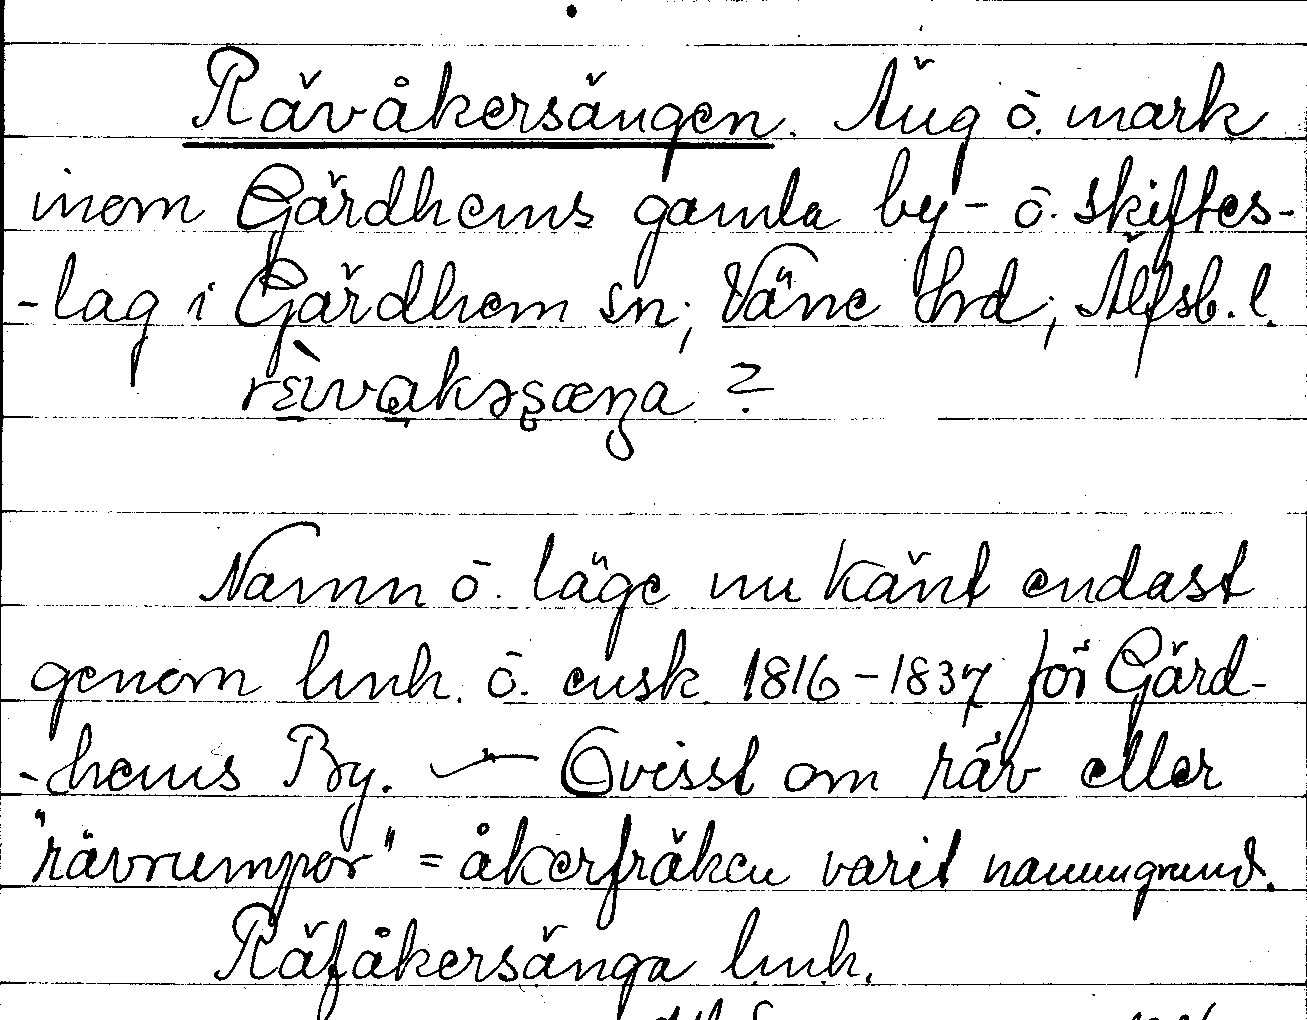 Rävåkersängen. Äng ō. mark
inom Gärdhems gamla by- ō. skiftes-
-lag i Gärdhem sn; Väne hrd; Älfsb. l.
rɛ̀ivɑkəʂæŋa ?
Namn ō. läge nu känt endast
genom lmh. ō. ensk. 1816-1837 för Gärd-
-hems By. — Ovisst om räv eller
"rävrumpor" = åkerfräken varit namngrund.
Räfåkersänga lmh.